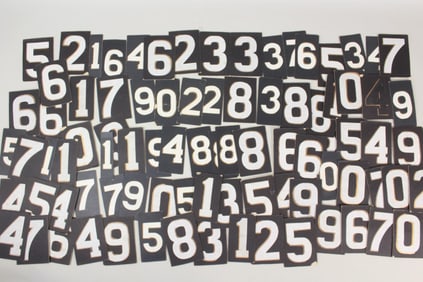 5 2 1 6 4 6 2 3 3 3 7 6 5 3 4 7
6 6 6 1 7 9 0 2 2 8 3 8 6 0 4 9
5 7 1 0 1 1 9 4 8 8 8 8 6 6 5 4 9
4 5 4 7 7 9 0 5 1 3 5 4 9 0 1 0 2
4 7 6 4 9 5 8 3 1 2 5 9 6 6 7 0